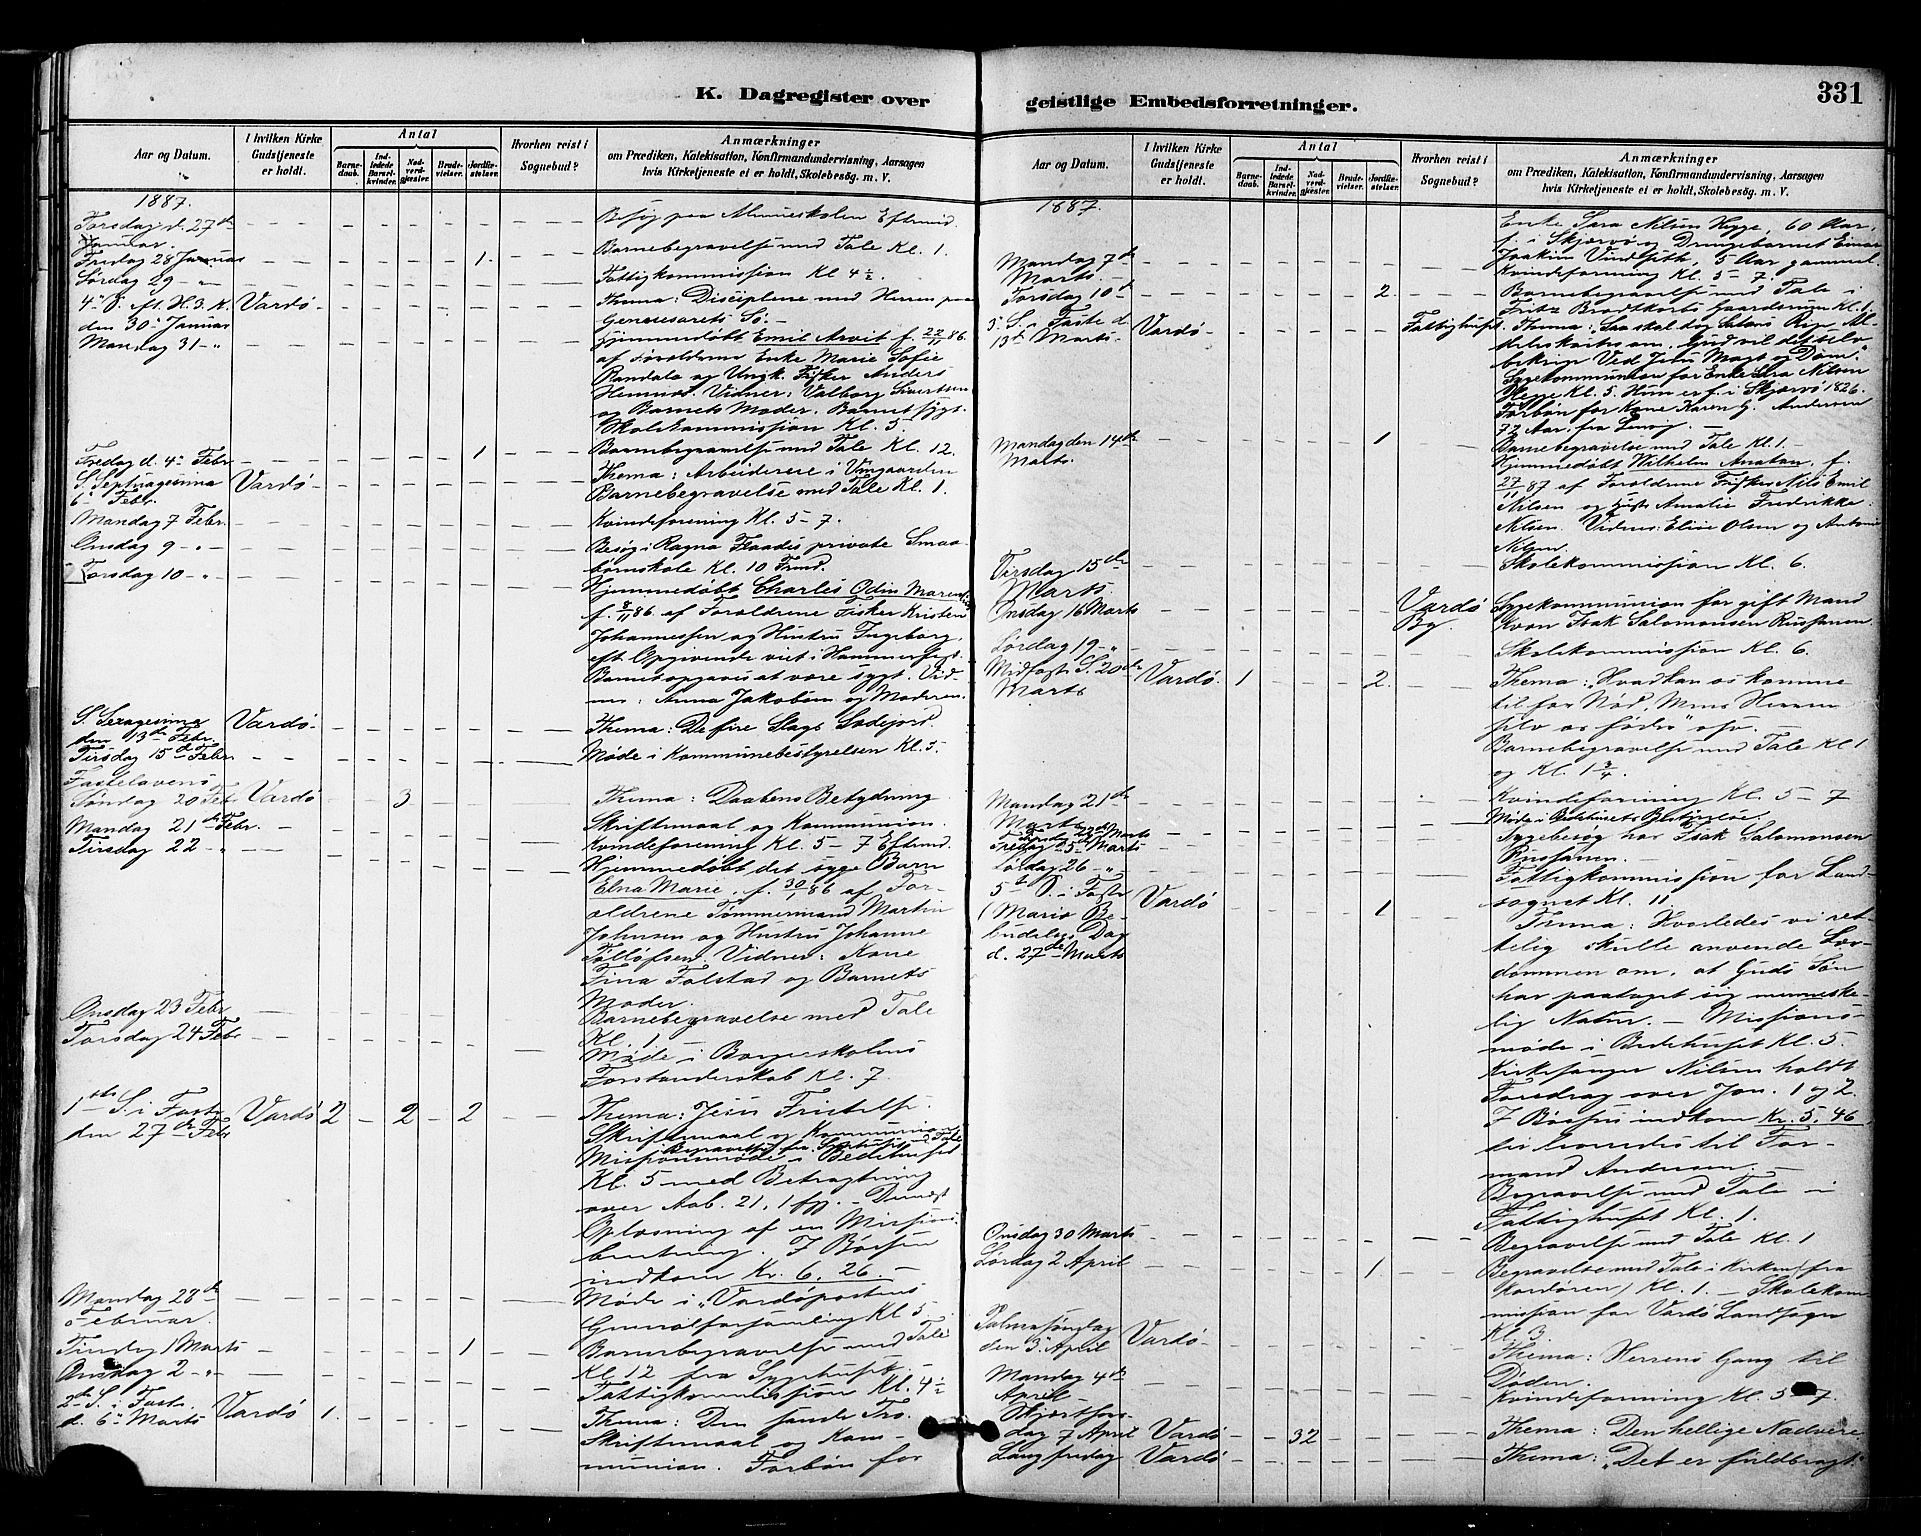 K. Dagregister over
Aar og Datum.
I hvilken Kirke Gudstjeneste er holdt.
Antal
Barne-daab.
Ind-ledede Barsel-kvinder.
Nad-verd-gjester.
Brude-vielser.
Jordfæ-stelser.
Hvorhen reist i Sognebud?
Anmærkninger
om Prædiken, Katekisation, Konfirmandundervisning, Aarsagen
hvis Kirketjeneste ei er holdt, Skolebesøg. m. V.
1887.
Torsdag d. 27de Januar. Besøg paa Almueskolen Eftmid.
Fredag 28 Januar 1. Barnebegravelse med Tale Kl. 1.
Lørdag 29 - " Fattigkommission Kl 4 1/2
4" S. eft. H. 3. K. Vardø Thema: Disciplene med Herren paa
den 30" Januar Genesarets Sø.
Mandag 31 - " Hjemmedøbt Emil Arvit f. 27/11 86.
af Forældrene Enke Marie Sofie
Randala og Ungk. Fisker Anders
Hemnes. Vidner: Valborg Sivertsen
og Barnets Moder. Barnet sygt.
Skolekommission Kl. 5.
Fredag d. 4" Febr 1 Barnebegravelse med Tale Kl. 12.
S. Septuagesima Vardø Thema: Arbeiderne i Vingaarden
6" Febr. Barnebegravelse med Tale Kl. 1.
Mandag 7 Febr. Kvindeforening Kl. 5-7.
Onsdag 9 - " Besøg i Ragna Flaadis private Smaa-
børnskole Kl. 10 Frmd.
Torsdag 10 - " Hjemmedøbt Charles Odin
f. 8/11 86 af Forældrene Fisker Kristen
Johannessen og Hustru Ingeborg,
eft. Opgivende viet i Hammerfest.
Barnet opgaves at være sygt. Vid-
ner: Anna Jakobsen og Moderen.
S. Sexagesima Vardø Thema: De fire Slags Sædejord.
den 13de Febr.
Tirsdag 15de Febr Møde i Kommunebestyrelsen Kl. 5.
Fastelavens
Søndag 20 Feb Vardø 3 Thema: Daabens Betydning
Skriftemaal og Kommunion.
Mandag 21de Febr. Kvindeforening Kl. 5-7 Eftmd.
Tirsdag 22 - " Hjemmedøbt det syge Barn
Elna Marie, f. 30/ 86 af For-
ældrene Tømmermand Martin
Johnsen og Hustru Johanne
Tollofsen. Vidner: Kone
Fina Falstad og Barnets
Moder.
Onsdag 23 Febr Barnebegravelse med Tale
Kl. 1.
Torsdag 24 Febr Møde i Borgerskolens
Forstanderskab Kl. 7.
1ste S. i Faste Vardø 2 2 2 Thema: Jesu Fristelse.
den 27de Febr Skriftemaal og Kommunion
Missionsmøde i Bedehuset
Kl. 5 med Betragtning
over Aab. 21, 1 fg. - Dernest
Oplæsning af en Missions-
beretning. I Bøssen
indkom Kr. 6,26. -
Mandag 28de Møde i "Vardøpostens"
Februar. Generalforsamling Kl 5.
Tirsdag 1 Marts 1 Barnebegravelse med Tale
Kl 12 fra Sygehuset. -
Onsdag 2 - " Fattigkommission Kl. 4 1/2
2de S. i Faste Vardø 1. Thema: Den sande Tro.
d. 6" Marts Skriftemaal og Kom-
munion. Forbøn for
geistlige Embedsforretninger.
331
Aar og Datum.
I hvilken Kirke Gudstjeneste er holdt.
Antal
Barne-daab.
Ind-ledede Barsel-kvinder.
Nad-verd-gjester.
Brude-vielser.
Jordfæ-stelser.
Hvorhen reist i Sognebud?
Anmærkninger
om Prædiken, Katekisation, Konfirmandundervisning, Aarsagen
hvis Kirketjeneste ei er holdt, Skolebesøg. m. V.
1887. Enke Sara Nilsen Hegge, 60 Aar,
f. i Skjærvø og Drengebarnet Einar
Joakim 5 Aar gammel.
Mandag 7de Marts. Kvindeforening Kl. 5-7.
Torsdag 10de 2 Barnebegravelse med Tale i
Fritz Brodtkorbs Gaardsrum Kl. 1.
3" S. i Faste d. Vardø Fattighuset. Thema:
13de Marts Gud vil det selv
bekrige Ved Jesu Magt og Dom".
Sygekommunion for Enke Sara Nilsen
Hegge Kl. 5. Hun er f. i Skjærvø 1826.
Forbøn for Kone Karen G. Andersen
72 Aar. fra
Mandag den 14de 1 Barnebegravelse med Tale Kl. 1. -
Marts. Hjemmedøbt Wilhelm f.
27/11 87 af Forældrene Fisker Nils Emil
Nilsen og Hustr Amalie Fredrikke
Nilsen. Vidner: Elise Olsen og
Nilsen.
Tirsdag 15de Marts. Skolekommission Kl. 6.
Onsdag 16 Marts Vardø By. Sygekommunion for gift Mand
Kvæn Isak Salomonsen
Lørdag 19 - " Skolekommission Kl. 6.
Midfaste S. 20de Vardø. 1 2. Thema: "Hvad kan os komme
Marts til for Nød, Mens Herren
selv os føder" osv.
Barnebegravelse med Tale Kl 1
og Kl. 1 3/4.
Mandag 21de Marts Kvindeforening Kl. 5-7
Møde i Bestyrelse.
Fredag 25de Marts Sygebesøg hos Isak Salomonsen
Lørdag 26 - " Fattigkommission for Land-
sognet Kl. 11.
5te S. i Faste Vardø 1 Thema: Hvorledes vi ret-
(Mariæ Be- telig skulle anvende Lær-
budelses Dag dommen om, at Guds Søn
d. 27de Marts har paataget sig menneske-
lig Natur. - Missions-
møde i Bedehuset Kl. 5.
Kirkesanger Nilsen holdt
Foredrag over Jon. 1 og 2.
I Bøssen indkom Kr. 5,46
der leveredes til For-
mand Andersen. -
Begravelse med Tale i
Fattighuset Kl. 1.
Onsdag 30 Marts Begravelse med Tale Kl. 1
Lørdag 2 April 1. Begravelse med Tale i Kirken (fra
Kordøren) Kl. 1. - Skolekom-
mission for Vardø Landsogn
Kl. 3.
Palmesøndag Vardø Thema: Herrens Gang til
den 3" April Døden.
Mandag 4de April Kvindeforening Kl. 5-7.
Skjærtors-
dag 7 April Vardø 32 Thema: Den hellige Nadvere
Langfredag Vardø Thema: "Det er fuldbragt."